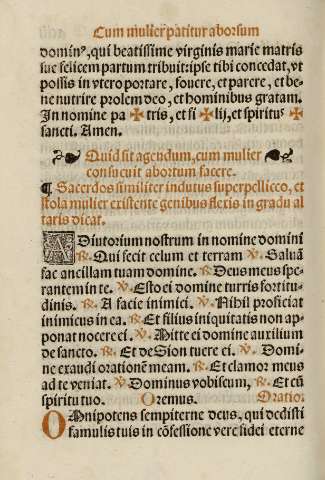 Cum mulier patitur aborsum
domin⁹, qui beatissime virginis marie matris
sue felicem partum tribuit: ipse tibi concedat, vt
possis in vtero portare, fouere, et parere, et be-
ne nutrire prolem deo, et hominibus gratam.
In nomine pa ✠ tris, et fi ✠ lij, et spiritu⁹ ✠
sancti. Amen.
Quid sit agendum, cum mulier
consueuit abortum facere.
¶ Sacerdos similiter indutus superpelliceo, et
stola muliere existente genibus flexis in gradu al
taris dicat.
ADiutorium nostrum in nomine domini
℟. Qui fecit celum et terram ℣. Saluā
fac ancillam tuam domine. ℟. Deus meus spe-
rantem in te. ℣. Esto ei domine turris fortitu-
dinis. ℟. A facie inimici. ℣. Nihil proficiat
inimicus in ea. ℟. Et filius iniquitatis non ap-
ponat nocere ei. ℣. Mitte ei domine auxilium
de sancto. ℟. Et de Sion tuere ei. ℣. Domi-
ne exaudi orationē meam. ℟. Et clamor meus
ad te veniat. ℣. Dominus vobiscum, ℟. Et cū
spiritu tuo. Oremus. Oratio.
OMnipotens sempiterne deus, qui dedisti
famulis tuis in cōfessione vere fidei eterne